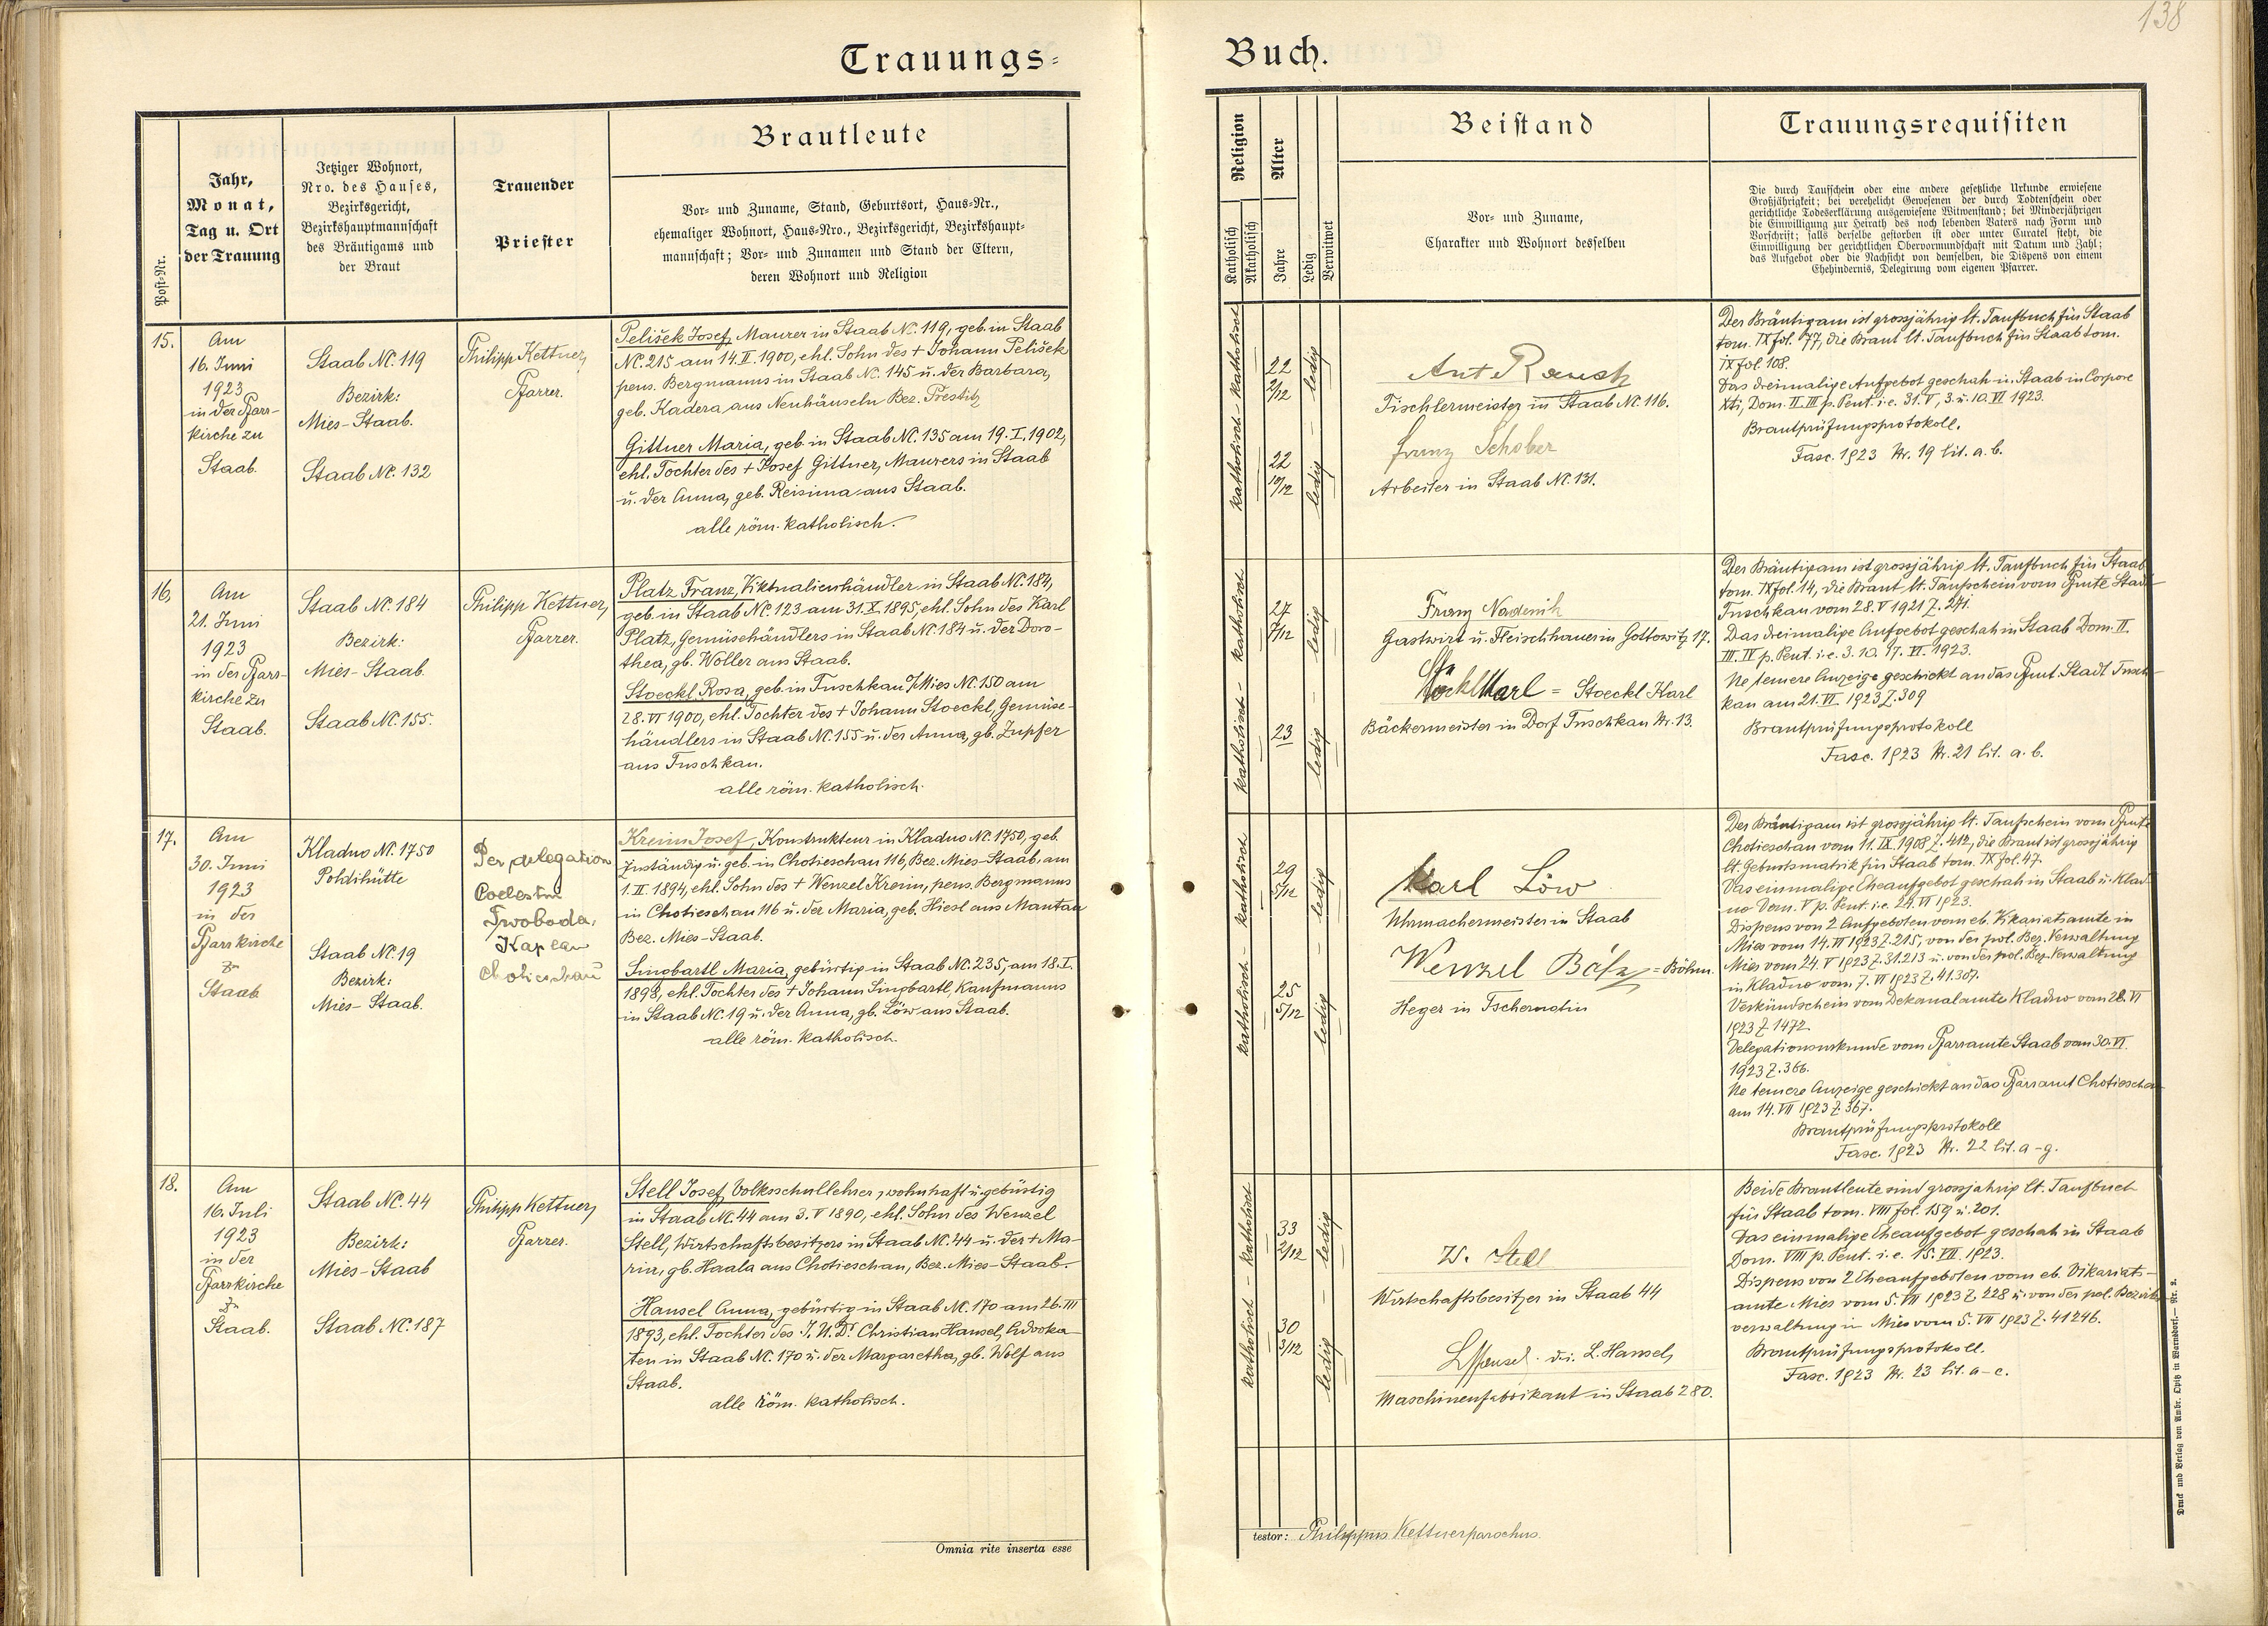 138
Trauungs=
Buch.
Post-Nr.
Jahr,
Monat,
Tag u. Ort
der Trauung
Jetziger Wohnort,
Nro. des Hauses,
Bezirksgericht,
Bezirkshauptmannschaft
des Bräutigams und
der Braut
Trauender
Priester
Brautleute
Vor- und Zuname, Stand, Geburtsort, Haus-Nr.,
ehemaliger Wohnort, Haus-Nro., Bezirksgericht, Bezirkshaupt-
mannschaft; Vor- und Zunamen und Stand der Eltern,
deren Wohnort und Religion
Religion
Katholisch
Akatholisch
Alter
Jahre
Ledig
Verwitwet
Beistand
Vor- und Zuname,
Charakter und Wohnort desselben
Trauungsrequisiten
Die durch Taufschein oder eine andere gesetzliche Urkunde erwiesene
Großjährigkeit; bei verehelicht Gewesenen der durch Todtenschein oder
gerichtliche Todeserklärung ausgewiesene Witwenstand; bei Minderjährigen
die Einwilligung zur Heirath des noch lebenden Vaters nach Form und
Vorschrift; falls derselbe gestorben ist oder unter Curatel steht, die
Einwilligung der gerichtlichen Obervormundschaft mit Datum und Zahl;
das Aufgebot oder die Nachsicht von demselben, die Dispens von einem
Ehehindernis, Delegirung vom eigenen Pfarrer.
15.
Am
16. Juni
1923
in der Pfarr-
kirche zu
Staab.
Staab NC. 119
Bezirk:
Mies-Staab.
Staab NC. 132
Philipp Kettner,
Pfarrer.
Pelišek Josef, Maurer in Staab Nc. 119, geb. in Staab
NC. 215 am 14. II. 1900, ehl. Sohn des + Johann Pelišek
pens. Bergmanns in Staab Nc. 145 u. der Barbara,
geb. Kadera aus Neuhäuseln Bez. Prestitz
Gittner Maria, geb. in Staab NC. 135 am 19. I. 1902,
ehl. Tochter des + Josef Gittner, Maurers in Staab
u. der Anna, geb. Reisima aus Staab.
alle röm. katholisch.
katholisch - katholisch
22
2/12
22
10/12
ledig - ledig
Ant Rausch
Tischlermeister in Staab NC. 116.
Franz Schober
Arbeiter in Staab NC. 131.
Der Bräutigam ist grossjährig lt. Taufbuch für Staab
tom. IX fol. 77, die Braut lt. Taufbuch für Staab tom.
IX fol. 108.
Das dreimalige Aufgebot geschah in Staab in Corpore
Xti, Dom. II. III p. Pent. i. e. 31. V, 3. u. 10. VI 1923.
Brautprüfungsprotokoll.
Fasc. 1923 Nr. 19 lit. a. b.
16.
Am
21. Juni
1923
in der Pfarr-
kirche zu
Staab.
Staab NC. 184
Bezirk:
Mies-Staab.
Staab NC. 155.
Philipp Kettner,
Pfarrer.
Platz Franz, Viktualienhändler in Staab NC. 184,
geb. in Staab NC. 123 am 31. X. 1895, ehl. Sohn des Karl
Platz, Gemüsehändlers in Staab NC. 184 u. der Doro-
thea, gb. Woller aus Staab.
Stoeckl Rosa, geb. in Tuschkau a/Mies NC. 150 am
28. VI 1900, ehl. Tochter des + Johann Stoeckl, Gemüse-
händlers in Staab NC. 155 u. der Anna, gb. Zupfer
aus Tuschkau.
alle röm. katholisch.
katholisch - katholisch
27
7/12
23
ledig - ledig
Franz
Gastwirt u. Fleischhauer in Gottowitz 17.
Stöckl Karl = Stoeckl Karl
Bäckermeister in Dorf Tuschkau Nr. 13.
Der Bräutigam ist grossjährig lt. Taufbuch für Staab
tom. IX fol. 14, die Braut lt. Taufschein vom Pfmte Stadt
Tuschkau vom 28. V 1921 Z. 241.
Das dreimalige Aufgebot geschah in Staab Dom. II.
III. IV p. Pent. i. e. 3. 10. 17. VI. 1923.
Ne temere Anzeige geschickt an das Pfmt. Stadt Tusch-
kau am 21. VI. 1923 Z. 309
Brautprüfungsprotokoll
Fasc. 1923 Nr. 21 lit. a. b.
17.
Am
30. Juni
1923
in der
Pfarrkirche
zu
Staab
Kladno NC. 1750
Poldihütte
Staab NC. 19
Bezirk:
Mies-Staab.
Per delegation
Coelestin
Swoboda,
Kaplan
Chotieschau
Kreim Josef, Konstrukteur in Kladno NC. 1750, geb.
zuständig u. geb. in Chotieschau 116, Bez. Mies-Staab, am
1. II. 1894, ehl. Sohn des + Wenzel Kreim, pens. Bergmanns
in Chotieschau 116 u. der Maria, geb. Hiesl aus Mantau
Bez. Mies-Staab.
Singbartl Maria, gebürtig in Staab NC. 235, am 18. I.
1898, ehl. Tochter des + Johann Singbartl, Kaufmanns
in Staab NC. 19 u. der Anna, gb. Löw aus Staab.
alle röm. katholisch.
katholisch - katholisch
29
5/12
25
5/12
ledig - ledig
Karl Löw
Uhrmachermeister in Staab
Wenzel Böhm = Böhm.
Heger in Tschernotin
Der Bräutigam ist grossjährig lt. Taufschein vom Pfmte
Chotieschau vom 11. IX. 1908 Z. 412, die Braut ist grossjährig
lt. Geburtsmatrik für Staab tom. IX fol. 47.
Das einmalige Eheaufgebot geschah in Staab u. Klad-
no Dom. V p. Pent. i. e. 24. VI 1923.
Dispens von 2 Aufgeboten vom eb. Vikariatsamte in
Mies vom 14. VI 1923 Z. 215, von der pol. Bez. Verwaltung
Mies vom 24. V 1923 Z. 31.213 u. von der pol. Bez. Verwaltung
in Kladno vom 7. VI 1923 Z. 41.307.
Verkündschein vom Dekanalamte Kladno vom 28. VI
1923 Z. 1472.
Delegationsurkunde vom Pfarramte Staab vom 30. VI.
1923 Z. 366.
Ne temere Anzeige geschickt an das Pfarramt Chotieschau
am 14. VII 1923 Z. 367.
Brautprüfungsprotokoll
Fasc. 1923 Nr. 22 lit. a - g.
18.
Am
16. Juli
1923
in der
Pfarrkirche
zu
Staab.
Staab NC. 44
Bezirk:
Mies-Staab
Staab NC. 187
Philipp Kettner,
Pfarrer.
Stell Josef, Volksschullehrer, wohnhaft u. gebürtig
in Staab NC. 44 am 3. V 1890, ehl. Sohn des Wenzel
Stell, Wirtschaftsbesitzers in Staab NC. 44 u. der + Ma-
ria, gb. Haala aus Chotieschau, Bez. Mies-Staab.
Hansel Anna, gebürtig in Staab NC. 170 am 26. III
1893, ehl. Tochter des J. U. Dr. Christian Hansel, Advoka-
ten in Staab NC. 170 u. der Margaretha, gb. Wolf aus
Staab.
alle röm. katholisch.
katholisch - katholisch
33
2/12
30
3/12
ledig - ledig
W. Stell
Wirtschaftsbesitzer in Staab 44
LHansel d. i. L. Hansel,
Maschinenfabrikant in Staab 280.
Beide Brautleute sind grossjährig lt. Taufbuch
für Staab tom. VIII fol. 159 u. 201.
Das einmalige Eheaufgebot geschah in Staab
Dom. VIII p. Pent. i. e. 15. VII. 1923.
Dispens von 2 Eheaufgeboten vom eb. Vikariats-
amte Mies vom 5. VII 1923 Z. 228 u. von der pol. Bezirks-
verwaltung in Mies vom 5. VII 1923 Z. 41246.
Brautprüfungsprotokoll.
Fasc. 1923 Nr. 23 lit. a - c.
Omnia rite inserta esse
testor: Philippus Kettner parochus.
Druck und Verlag von Ambr. Opitz in Warnsdorf. — Nr. 2.